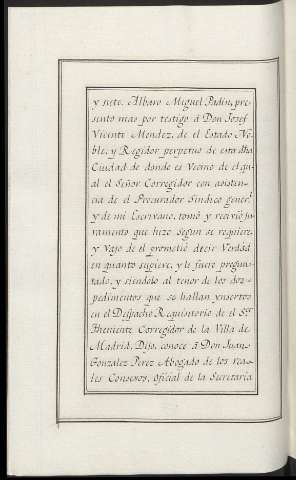 y siete. Albaro Miguel Padin, pre-
sento mas por testigo á Don Josef
Vicente Mendez, de el Estado No-
ble, y Regidor perpetuo de esta dha
Ciudad de donde es Vecino de el qu-
al el Señor Corregidor con asisten-
cia de el Procurador Sindico gener.l
y de mi Escrivano, tomó y recivio ju-
ramento que hizo segun se requiere,
y vajo de el prometió decir Verdad
en quanto supiere, y le fuere pregun-
tado, y siendolo al tenor de los dos
pedimentos que se hallan ynsertos
en el Despacho Requisitorio de el S.or
Theniente Corregidor de la Villa de
Madrid, Dijo, conoce á Don Juan
Gonzalez Perez Abogado de los rea-
les Consexos, Oficial de la Secretaria